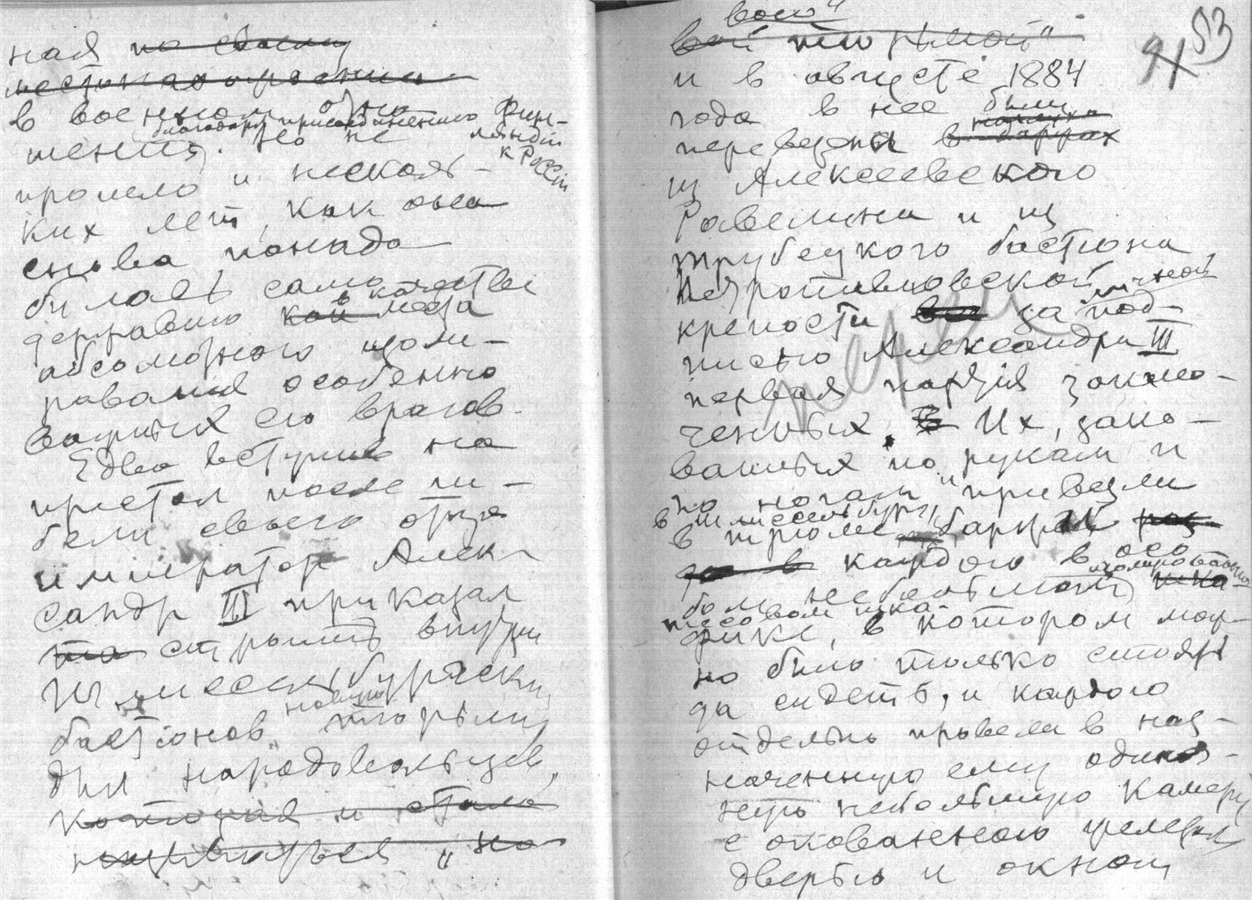 ная по своему
местонахождению
в военном отно-
шении благодаря присоединению Фин-
ляндіи
к Россіи
. Но не
прошло и несколь-
ких лет, как она
снова понадо-
билась само-
державию в качестве
кой места
абсолютного изоли-
рования особенно
важных его врагов.
Едва вступив на
престол после ги-
бели своего отца
император Алек-
сандр III приказал
та строить внутри
Шлиссельбургских
бастіонов новую тюрьму
для народовольцев,
которая и стала
называться „но-
вой"
вой тюрьмой"
91 53
и в августе 1884
года в нее были
переведены в баржах
из Алексеевского
Равелина и из
Трубецкого бастіона
Петропавловской
крепости за личной под-
писью Александра III
первая партія заклю-
ченных. В Их, зако-
ванных по рукам и
по ногам, привезли
в Шлиссельбург,
в трюме баржи
каждого в осо-
бом небольшом изолированном
тесовом шка-
фике, в котором мож-
но было только стоять
да сидеть, и каждого
отдельно провели в наз-
наченную ему одиноч-
ную небольшую камеру
с окованною железом
дверью и окном